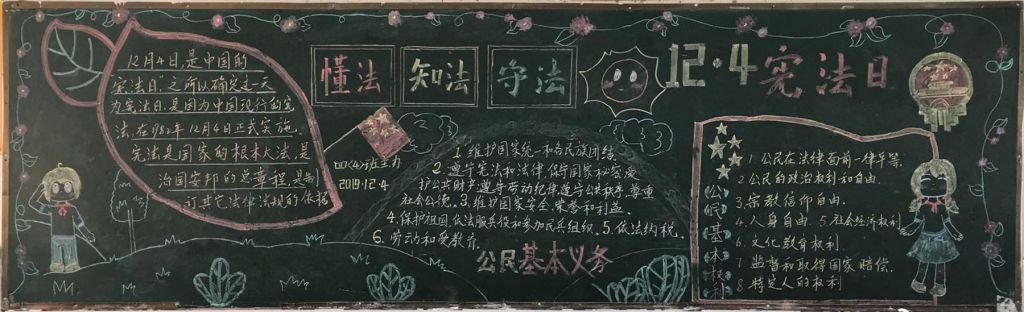 12月4日,是中国的
宪法日"之所以确定这一天
为宪法日,是因为中国现行的宪
法,在1982年12月4日正式实施.
宪法是国家的根本大法,是
治国安邦的总章程,是制
订其它法律法规的依据
懂法 知法 守法
12·4宪法日
四(4)班主办
2019.12.4
1.维护国家统一和各民族团结
2.遵守宪法和法律,保守国家秘密,爱
护公共财产,遵守劳动纪律,遵守公共秩序,尊重
社会公德.3.维护国家安全,荣誉和利益.
4.保护祖国,依法服兵役和参加民兵组织.5.依法纳税.
6.劳动和受教育.
公民基本义务
公民基本权利
1.公民在法律面前一律平等.
2.公民的政治权利和自由.
3.宗教信仰自由.
4.人身自由.5.社会经济权利
6.文化教育权利.
7.监督和取得国家赔偿.
8.特定人的权利